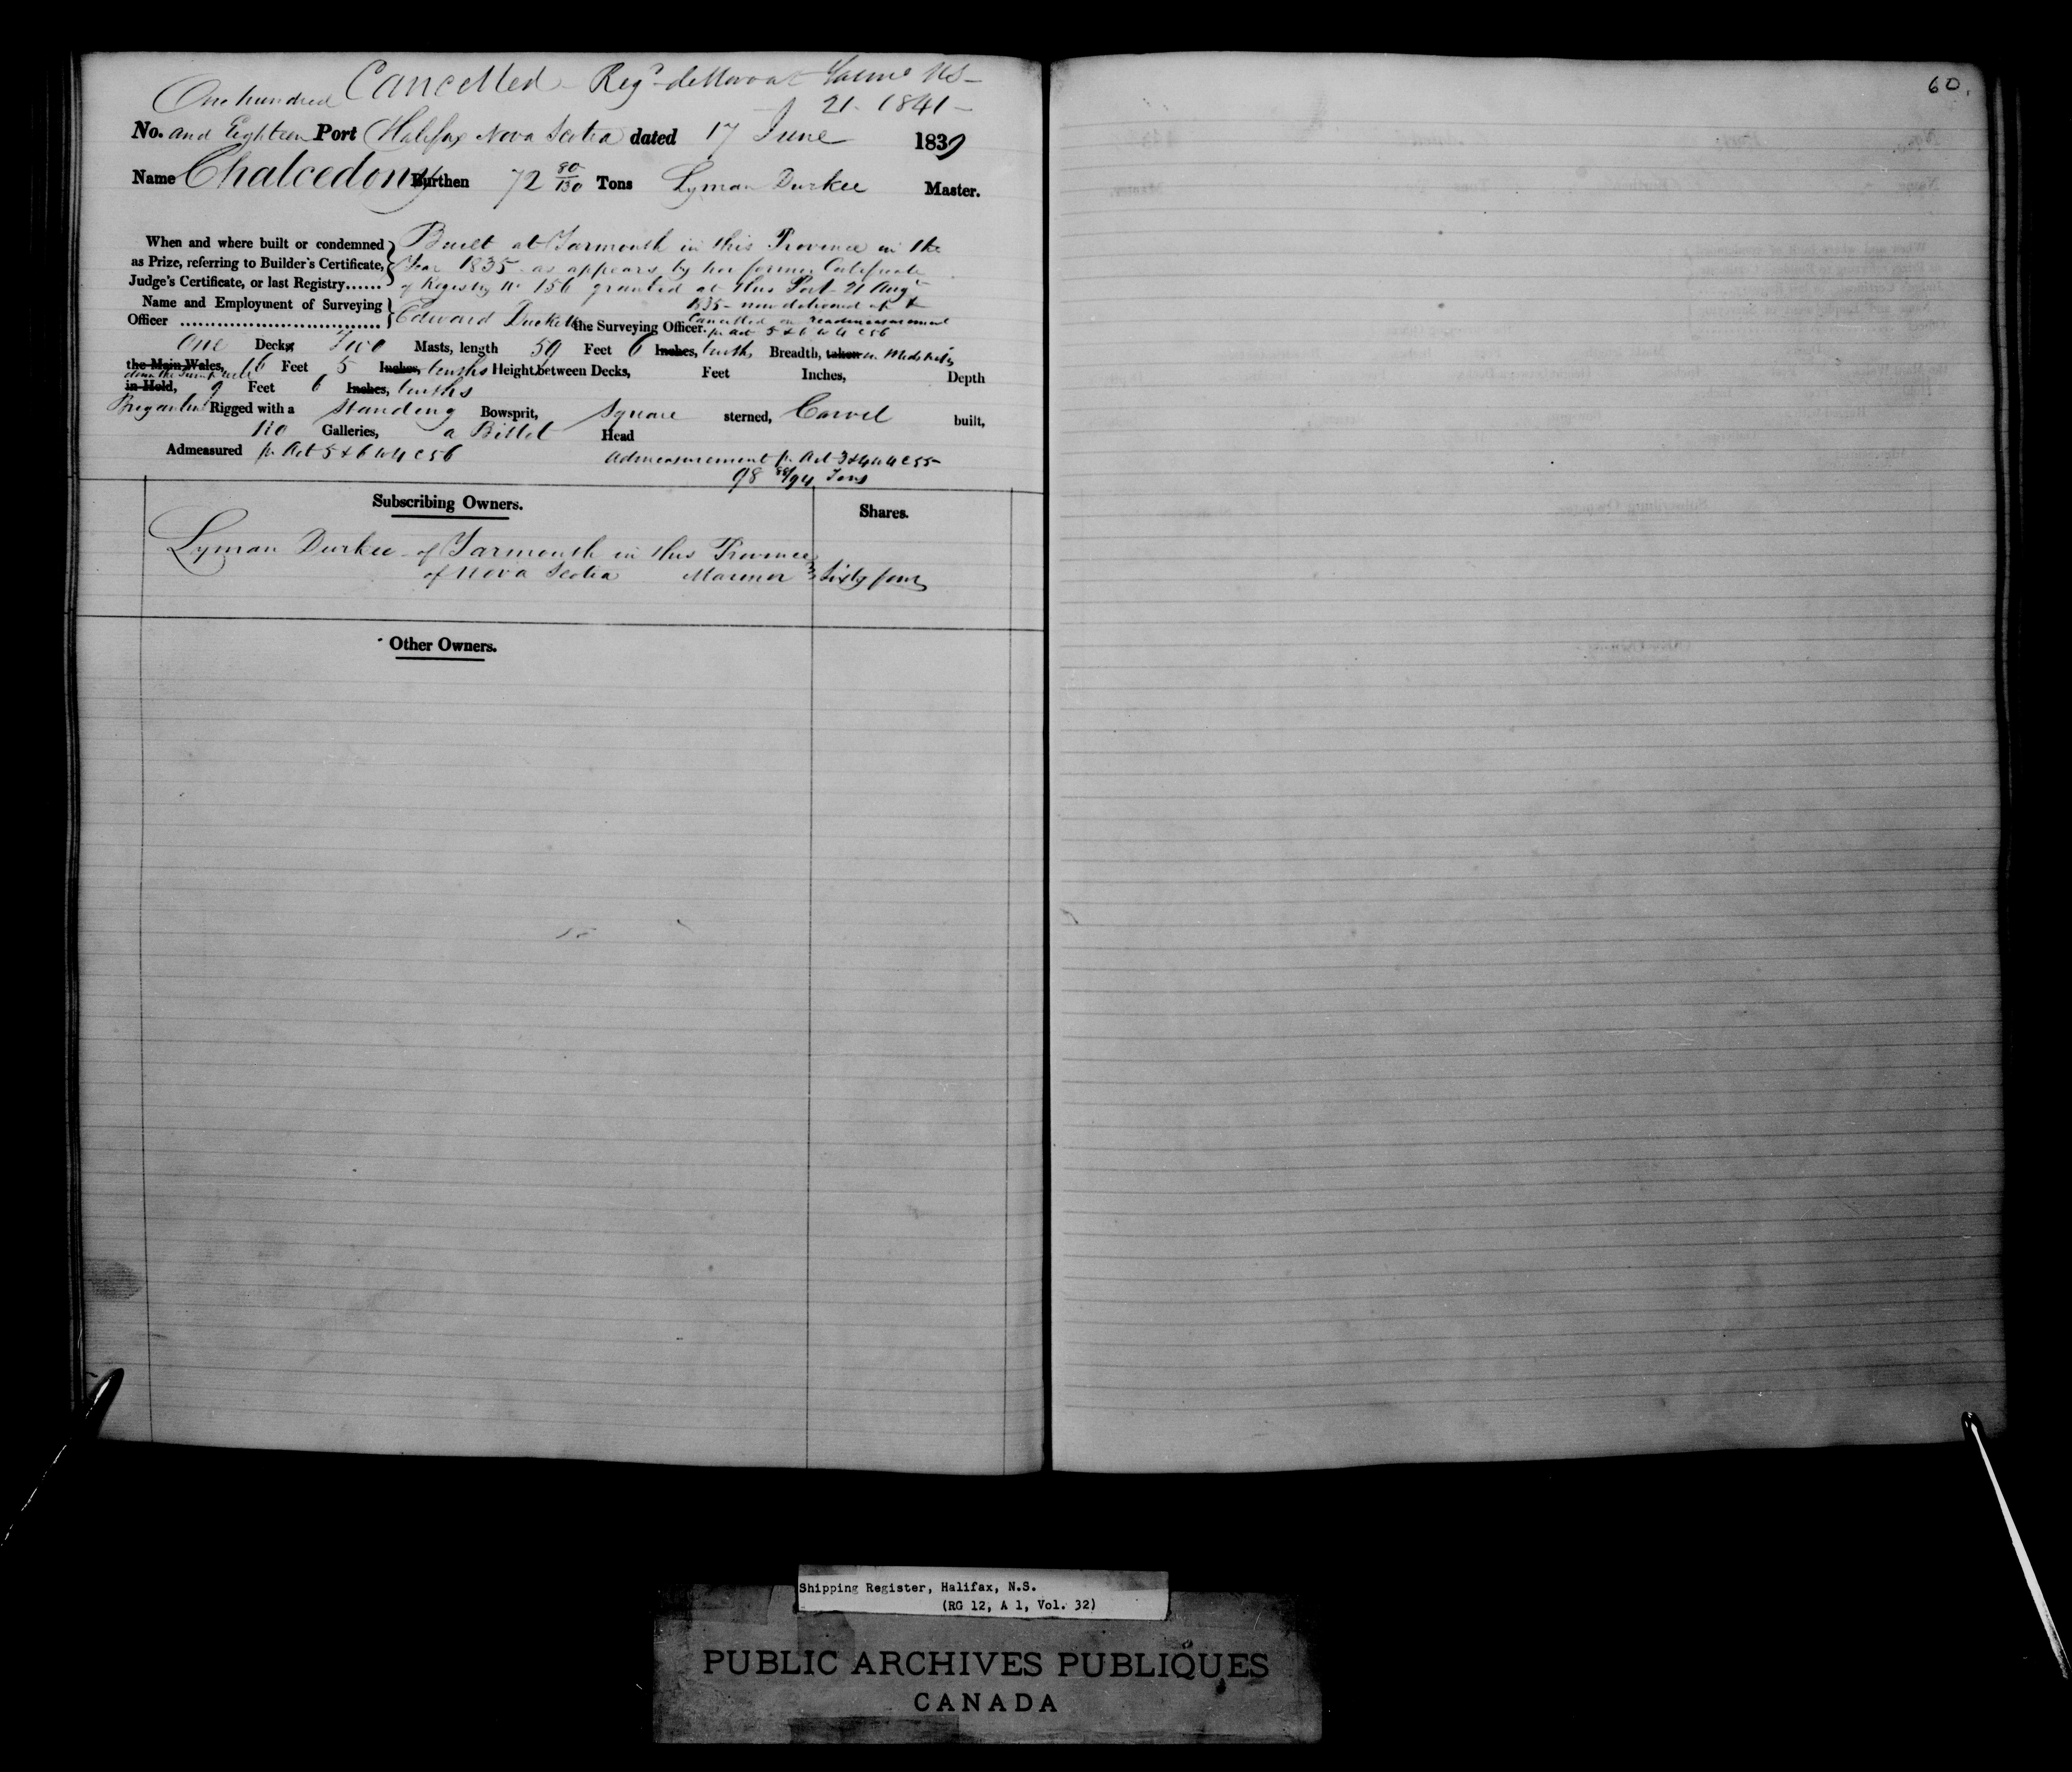 Cancelled Reg^d de Novo at Yarm^o NS
21 1841
60.
One hundred
No. and Eighteen Port Halifax Nova Scotia dated 17 June 1839
Name Chalcedony Burthen 72 80/130 Tons Lyman Durkee Master.
When and where built or condemned as Prize, referring to Builder's Certificate, Judge's Certificate, or last Registry......
Built at Yarmouth in this Province in the
Year 1835 as appears by her former Certificate
of Registry No 156 granted at this Port 21 Aug^t
1835 - now delivered up &
Cancelled on readmeasurement
pr Act 5 & 6 W 4 C 56
Name and Employment of Surveying
Officer ................................ Edward Duckett the Surveying Officer.
One Decks Two Masts, length 59 Feet 6 Inches, tenths Breadth, taken in Midships
the Main Wales, 16 Feet 5 Inches, tenths Height between Decks, Feet Inches, Depth
in Hold, 9 Feet 6 Inches, tenths
Brigantine Rigged with a Standing Bowsprit, Square sterned, Carvel built,
no Galleries, a Billet Head
Admeasured pr Act 5 & 6 W 4 C 56 Admeasurement pr Act 3 & 4 W 4 C 55
98 88/94 Tons
Subscribing Owners. Shares.
Lyman Durkee of Yarmouth in this Province
of Nova Scotia Mariner Sixty four
Other Owners.
Shipping Register, Halifax, N.S.
(RG 12, A 1, Vol. 32)
PUBLIC ARCHIVES PUBLIQUES
CANADA